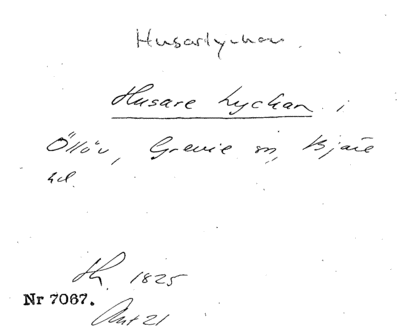 Husarlyckan.
Husare Lyckan i
Öllöv, Grevie sn, Bjäre
hd.
Sk. 1825
Nr 7067.
Akt 21